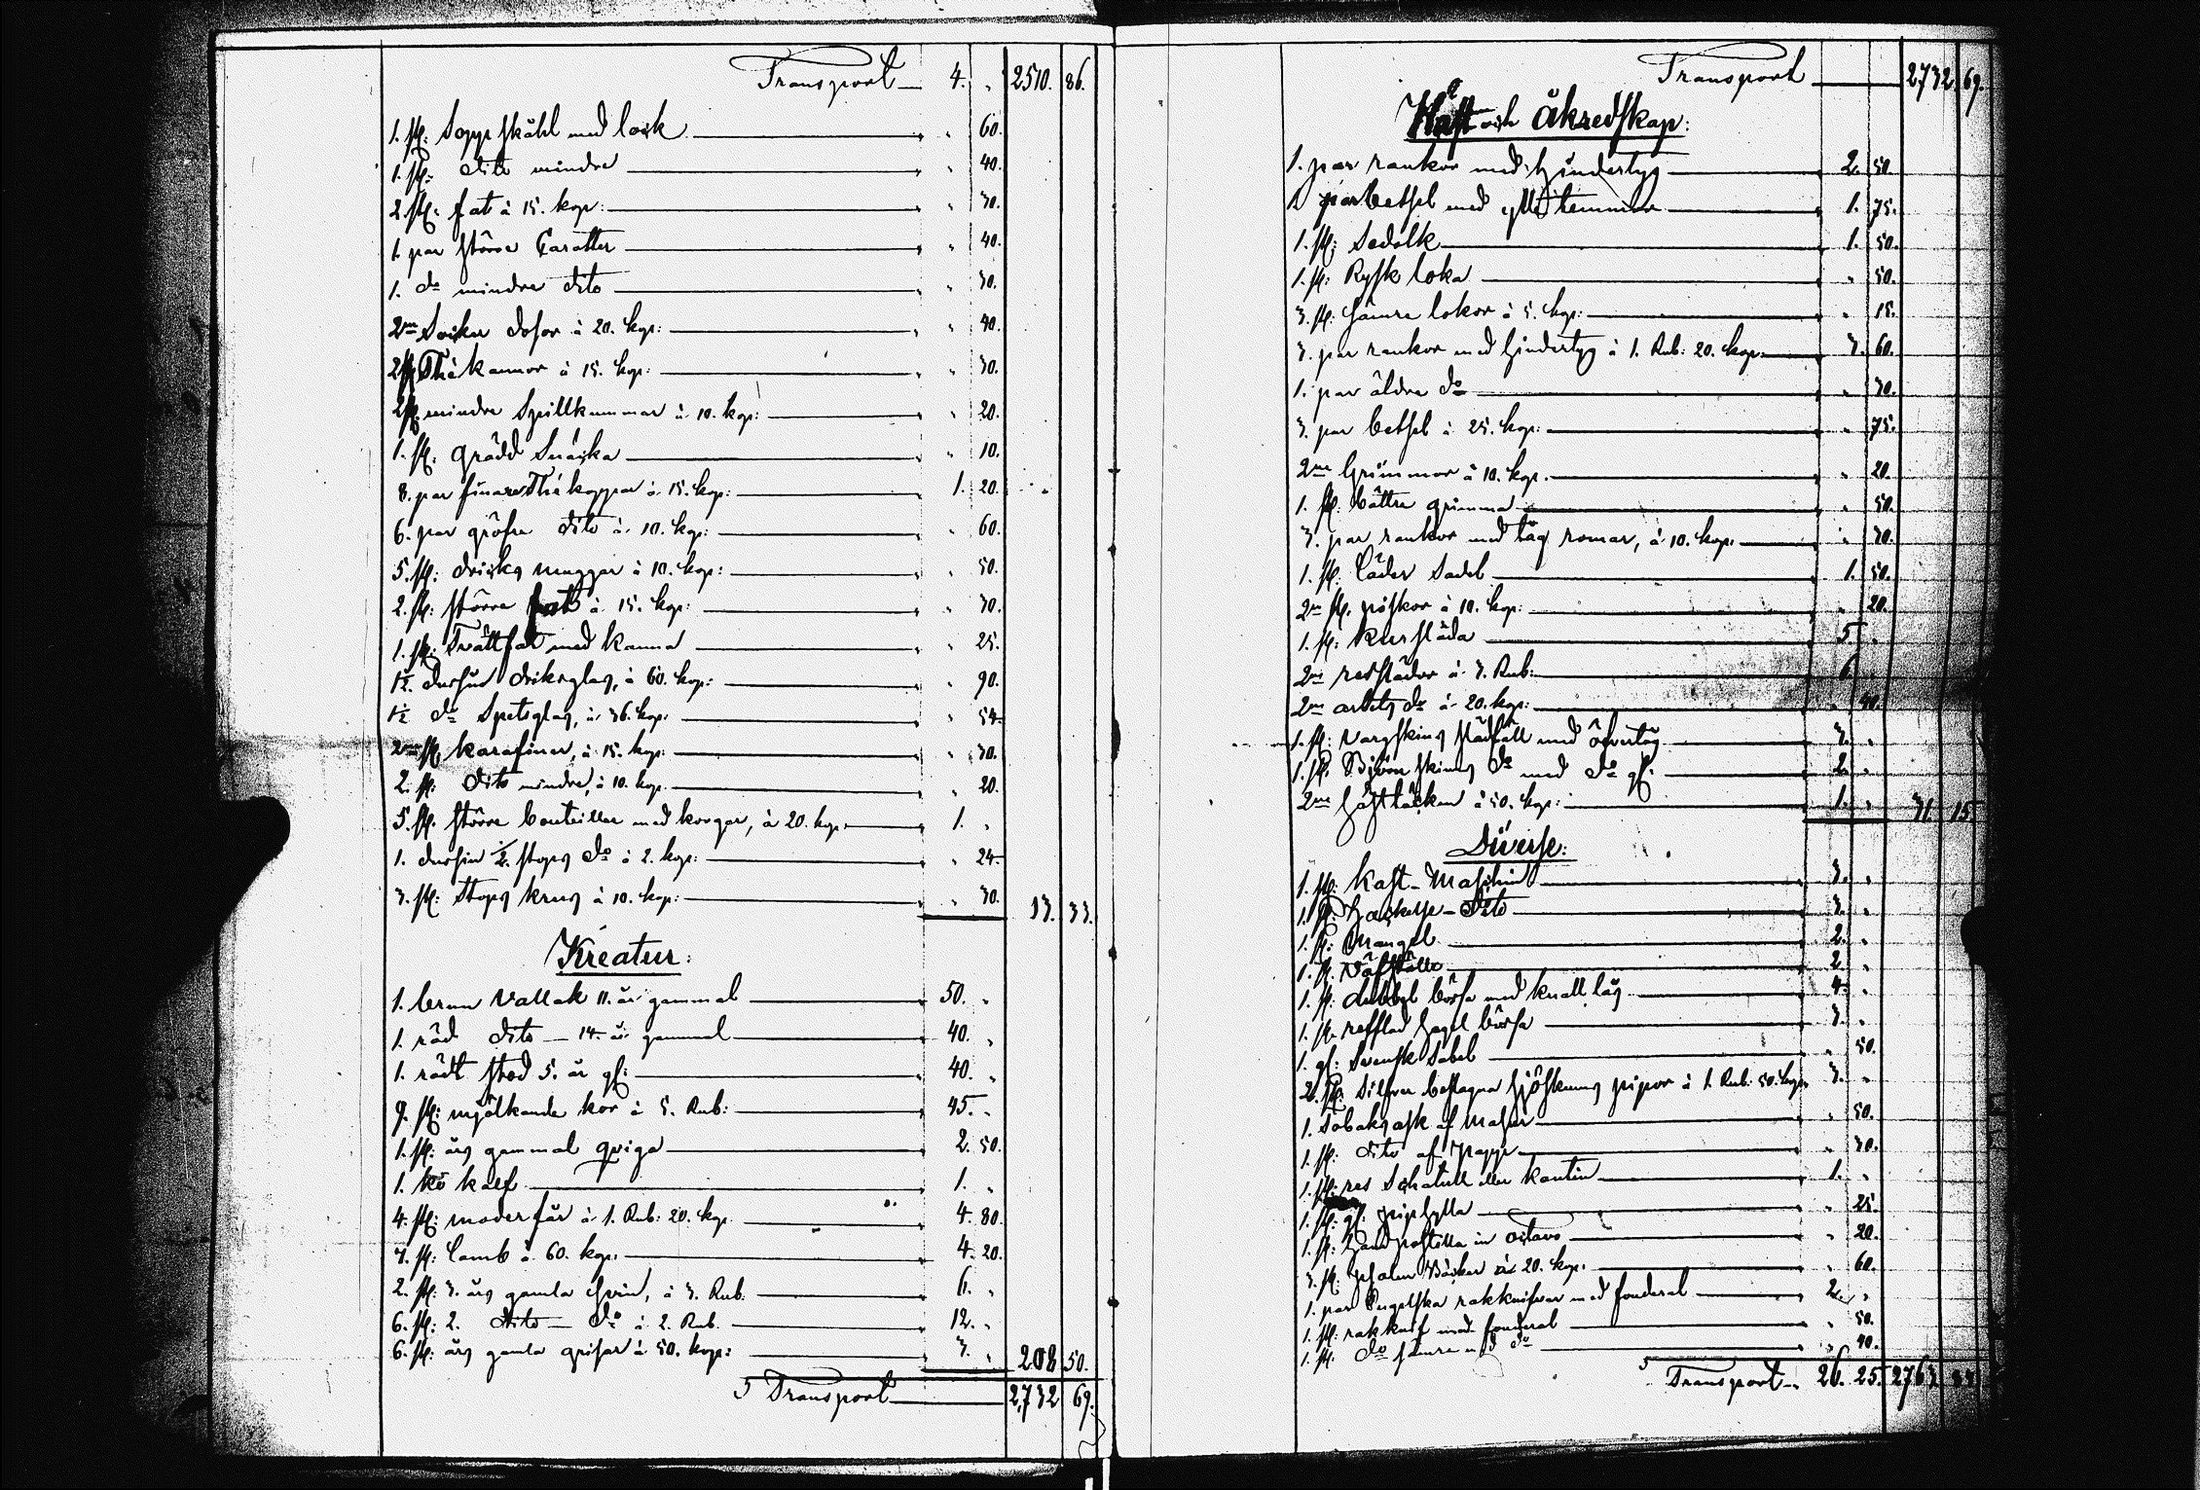 Transport 4. „ 2510. 86.
1. st: Soppskåhl med lock „ 60.
1. st: dito mindre „ 40.
2. st: fat à 15. kop: „ 30.
1. par större Carotter „ 40.
1. do mindre dito „ 30.
2ne Socker dosor à 20. kop: „ 40.
2 st Thékannor à 15. kop: „ 30.
2 st mindre Spillkummar à 10. kop: „ 20.
1. st: grädd Snäcka „ 10.
8. par finare Thékoppar à 15. kop: 1. 20.
6. par gröfre dito à 10. kop: „ 60.
5. st: dricks muggar à 10. kop: „ 50.
2. st: större fat à 15. kop: „ 30.
1. st: Tvättfat med kanna „ 25.
1½. dussin driksglas, à 60. kop: „ 90.
1½ do Spetsglas, à 36. kop: „ 54.
2ne st karafiner, à 15. kop: „ 30.
2. st: dito mindre, à 10. kop. „ 20.
5. st. större bouteiller med korgar, à 20. kop. 1. „
1. dussin ½. stops do à 2. kop: „ 24.
3. st: Stops krus à 10. kop: „ 30. 13. 33.
Kreatur:
1. brun Vallak 11. år gammal 50. „
1. röd dito – 14. år gammal 40. „
1. rödt stod 5. år gl: 40. „
9. st: mjölkande kor à 5. Rub: 45. „
1. st: års gammal qviga 2. 50.
1. ko kalf 1. „
4. st: moderfår à 1. Rub: 20. kop. 4. 80.
7. st: lamb à 60. kop. 4. 20.
2. st: 3. års gamla svin, à 3. Rub. 6. „
6. st: 2. dito – do à 2. Rub. 12. „
6. st: års gamla grisar à 50. kop: 3. „ 208 50.
Transport 2,732 69.
Transport 2732 69.
Häst och Åkredskap:
1. par rankor med hindertyg 2. 50.
1 par betsel med ytter 1. 75.
1. st: Sadolk 1. 50.
1. st: Rysk loka „ 50.
3. st: sämre lokor à 5. kop: „ 15.
3. par rankor med hindertyg à 1. Rub: 20. kop. 3. 60.
1. par äldre do „ 30.
3. par betsel à 25. kop: „ 75.
2ne Grimmor à 10. kop. „ 20.
1. st. bättre grimma „ 50.
3. par rankor med tåg romar, à 10. kop. „ 30.
1. st. läder Sadel 1. 50.
2ne st. piskor à 10. kop: „ 20.
1. st: kursläda 5. „
2ne resslädor à 3. Rub: 6. „
2ne arbets do à 20. kop: „ 40.
1. st: Vargskins slädfäll med öfvertåg 3. „
1. st. Björnskins do med do gl: 2. „
2ne hästtäcken à 50. kop: 1. „ 31. 15.
Diverse:
1. st. kast-Maschin 3. „
1. st: hackelse-dito 3. „
1. st: Mangel 2. „
1. st. Väfställe 2. „
1. st. dubbel bössa med knall lås 4. „
1. st. refflad hagel bössa 3. „
1. gl: Svensk Sabel „ 50.
2. st. Silfver beslagna sjöskums pipor à 1. Rub. 50. kop. 3. „
1. Tobaksask af Masur „ 50.
1. st: dito af Papp „ 30.
1. st: res Schatull eller kantin 1. „
1. st: gl. piphylla „ 25.
1. st: handpostilla in octavo „ 20.
3. st. psalm Böcker à 20. kop. „ 60.
1. par Engelska rakknifvar med fouderal 2. „
1. st: rakknif med fouderal „ 50.
1. st. do sämre med do „ 40.
Transport 26. 25. 2763.